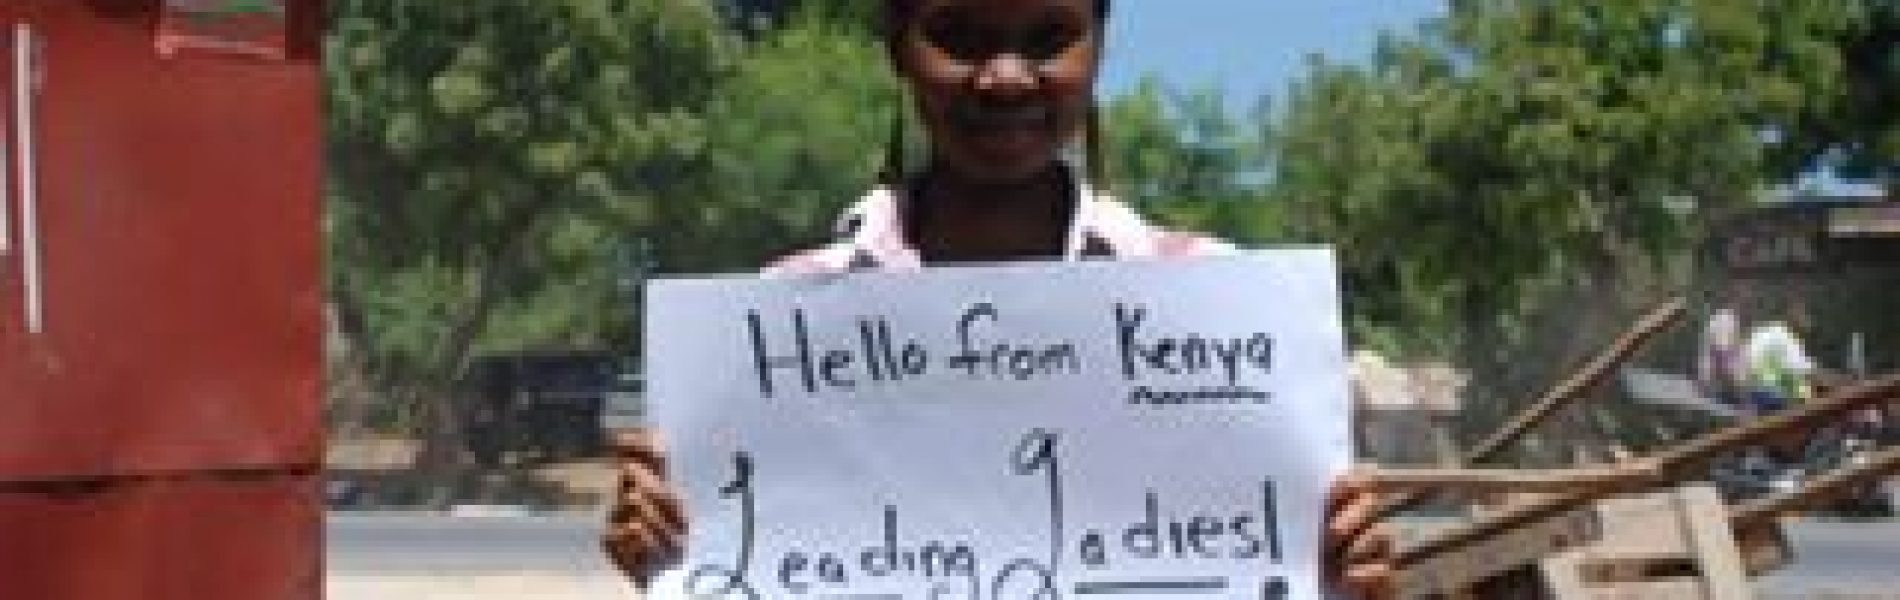 Hello from Kenya
Leading Ladies!